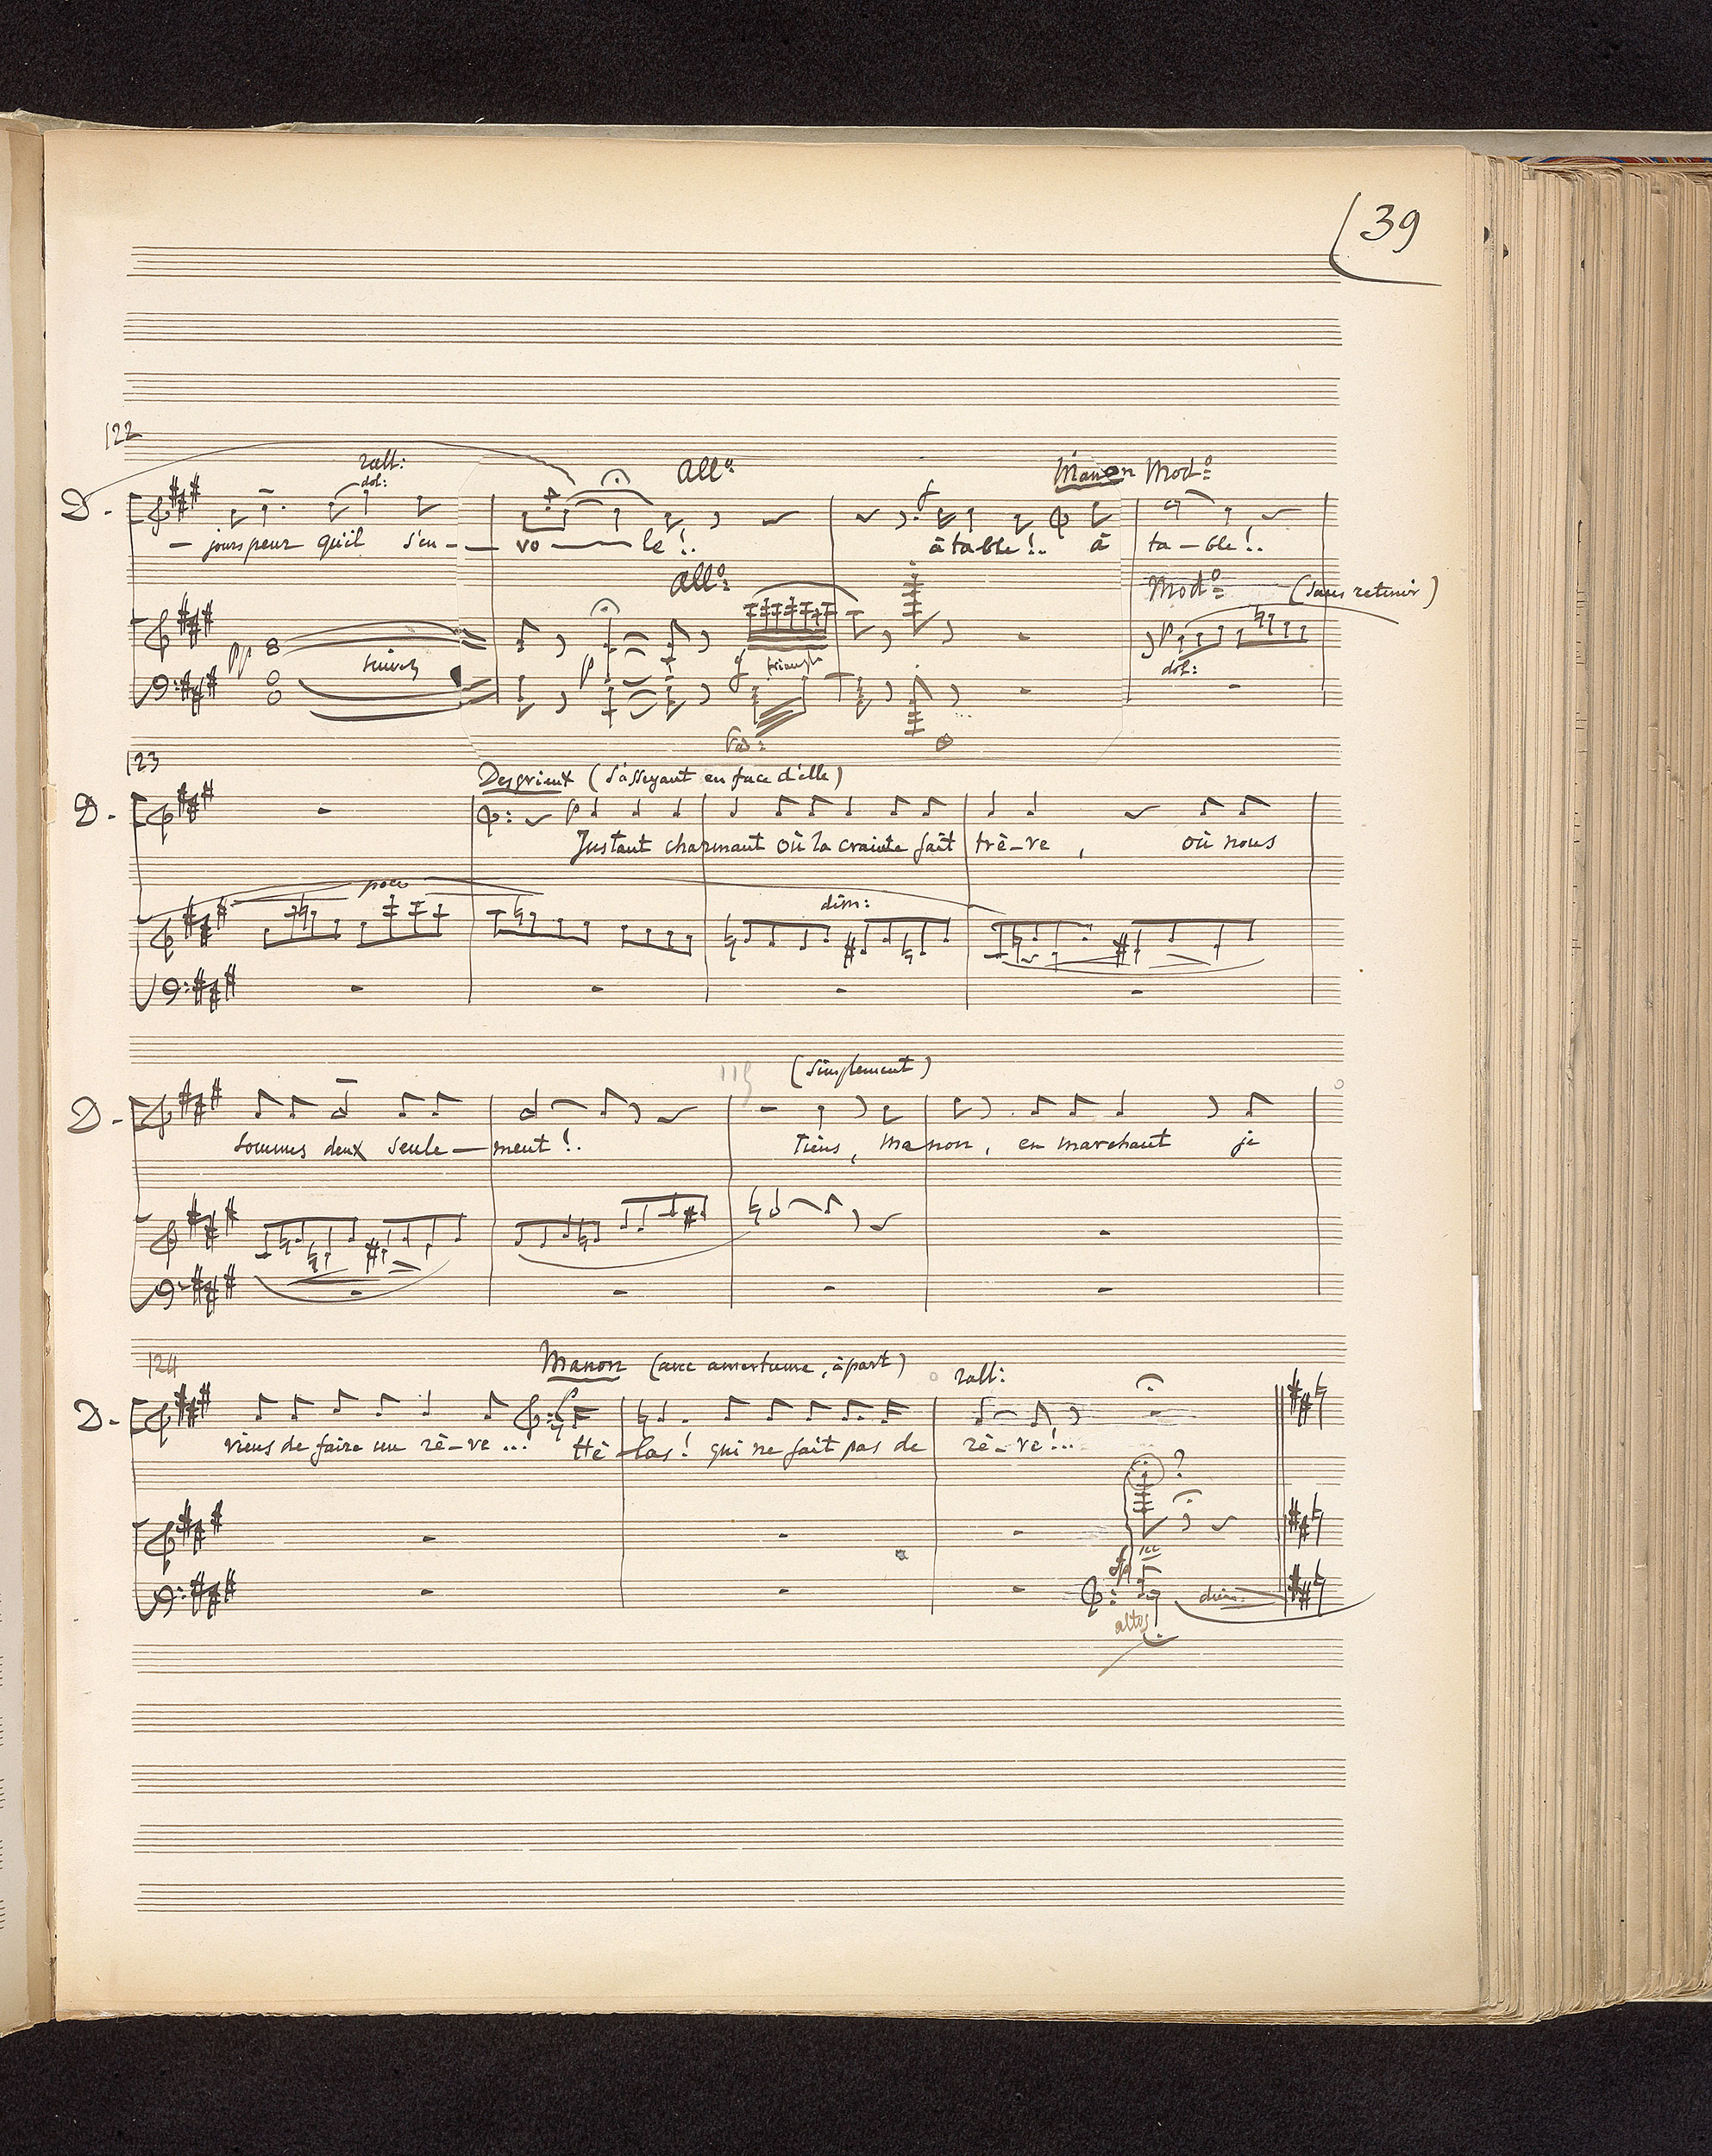 39
122
rall:
dol:
All°
Manon Mod°
D.
– jours peur qu'il s'en – vo – le !.. à table !.. à ta – ble !..
All°:
Mod° (sans retenir)
pp suivez p triangle dol:
Ped:
123
Desgrieux (s'asseyant en face d'elle)
D.
p
Instant charmant où la crainte fait trè–ve, où nous
poco
dim:
115
(simplement)
D.
sommes deux seule – ment !. Tiens, Manon, en marchant je
124
Manon (avec amertume, à part) rall:
D.
viens de faire un rê–ve ... Hé–las! qui ne fait pas de rê–ve!...
?
dim:
altos